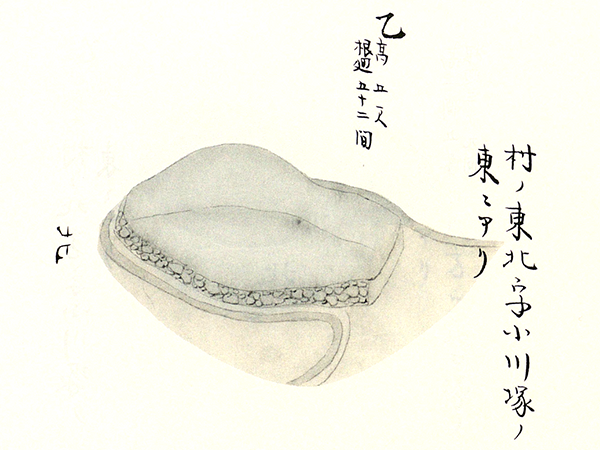 村ノ東北字小川塚ノ
東ニアリ
乙
高五丈
根廻五十二間
北